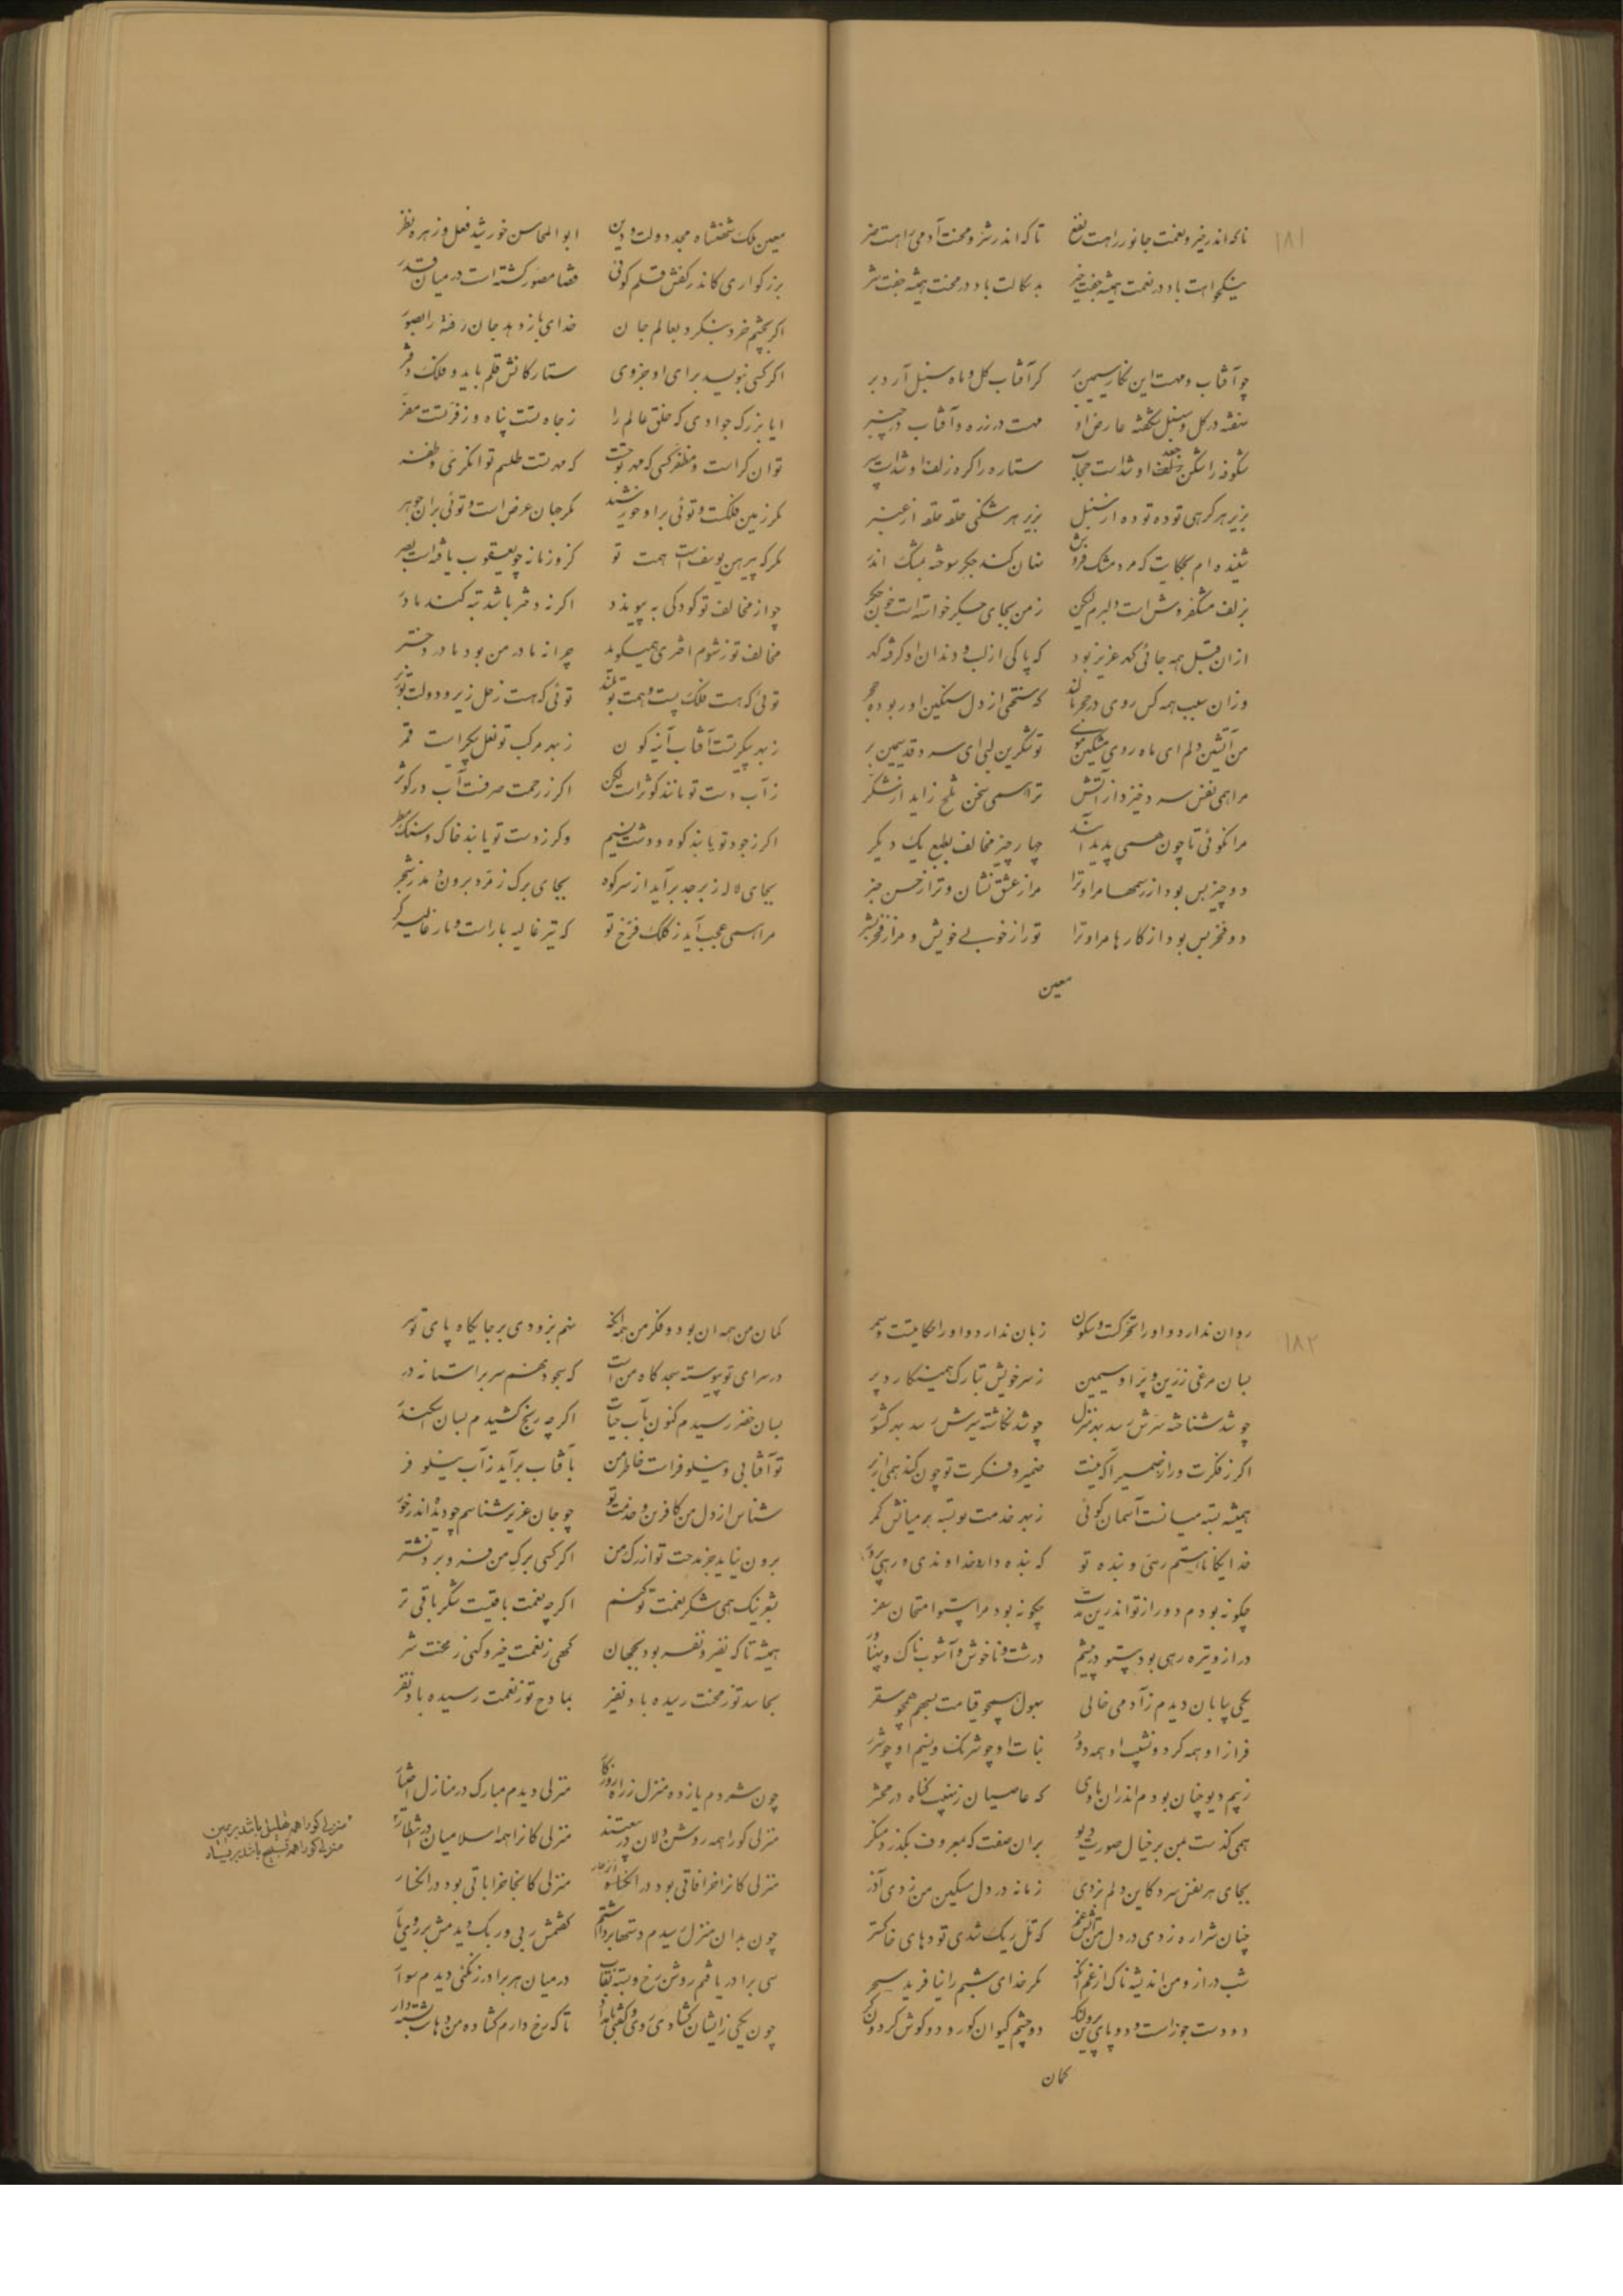 ۱۸۱
تا که اندر خیر و نعمت جانور راهست نفع تا که اندر شر و محنت آدمی راهست ضر
نیکخواهت باد در نعمت همیشه جفت خیر بدسکالت باد در محنت همیشه جفت شر
چو آفتاب و مهست این نکار سیمین بر کر آفتاب کل و ماه سنبل آرد بر
بنفشه در کل و سنبل شکفته عارض او مهست در زره و آفتاب در چنبر
شکوفه را شکن زلف او شداست حجاب ستاره را کره زلف او شداست سپر
بزیر هر کرهی توده توده از سنبل بزیر هر شکنی حلقه حلقه از عنبر
شنیده ام بحکایت که مرد مشک فروش نهان کند جکر سوخته بمشک اندر
بزلف مشکفروش است دلبرم لیکن ز من بجای جکر خواسته است خون جکر
از ان قبل همه جائی کهر عزیز بود که پاکی از لب و دندان او کرفته کهر
وزان سبب همه کس روی در حجر مالند که سختی از دل سنکین او ربوده حجر
من آتشین دلم ای ماه روی مشکین موی تو شکرین لبی ای سرو قد سیمین بر
مرا همی نفس سرد خیزد از آتش ترا همی سخن تلخ زاید از شکر
مرا نکوئی تا چون همی پدید آید چهار چیز مخالف بطبع یک دیکر
دو چیز بس بود از رسمها مرا و ترا مرا ز عشق نشان و ترا ز حسن خبر
دو فخر بس بود از کارها مرا و ترا تو را ز خوبی خویش و مرا ز فخر بشر
معین
معین ملک شهنشاه مجد دولت و دین ابو المحاسن خورشید فعل و زهره نظر
بزرکواری کاندر کفش قلم کوئی قضا مصور کشته است در میان قدر
اکر بچشم خرد بنکرد بعالم جان خدای باز دهد جان رفته را بصور
اکر کسی بنویسد برای او جزوی ستارکانش قلم باید و فلک دفتر
ایا بزرک جوادی که خلق عالم را ز جاه تست پناه و ز فر تست مفر
توانکر است و مظفر کسی که مهر تو جست که مهر تست طلسم توانکری و ظفر
مکر زمین فلکست و توئی بر او خورشید مکر جهان عرض است و توئی بر ان جوهر
مکر که پیرهن یوسف است همت تو کزو زمانه چو یعقوب یافته است بصر
چو از مخالف تو کودکی به پیوندد اکر نه دختر باشد تبه کند مادر
مخالف تو ز شوم اختری همیکوید چرا نه مادر من بود مادر دختر
توئی که هست فلک پست و همت تو بلند توئی که هست زحل زیر و دولت تو زبر
ز بهر پیکر تست آفتاب آینه کون ز بهر مرکب تو نعل پیکر است قمر
ز آب دست تو مانند کوثر است لیکن اکر ز رحمت صرفست آب در کوثر
اکر ز جود تو یابند کوه و دشت نسیم وکر ز دست تو یابند خاک و سنک مطر
بجای لاله زبرجد برآید از سر کوه بجای برک زمرد برون دمد ز شجر
مرا همی عجب آید ز کلک فرخ تو که تیر غالیه بار است و مار غالیه کر
۱۸۲
روان ندارد و او را تحرکست و سکون زبان ندارد و او را حکایتست و سمر
بسان مرغی زرین و پر او سیمین ز سر خویش تبارک همی نکارد پر
چو شد شناخته سرش رسد بهر منزل چو شد نکاشته سیرش رسد بهر کشور
اکر ز فکرت و راز ضمیر آکه نیست ضمیر و فکرت تو چون کند همی از بر
همیشه بسته میانست آسمان کوئی ز بهر خدمت تو بسته بر میانش کمر
خدایکانا هستم رهی و بنده تو که بنده دار خداوندی و رهی پرور
چکونه بودم دور از تو اندرین مدت چکونه بود مرا بیتو امتحان سفر
دراز و تیره رهی بود بیتو در پیشم درشت و ناخوش و آشوب ناک و پهناور
یکی بیابان دیدم ز آدمی خالی بهول همچو قیامت بسهم همچو سقر
فراز او همه کرد و نشیب او همه دود نبات او چو شرنک و نسیم او چو شرر
ز بیم دیو چنان بودم اندران وادی که عاصیان ز نهیب کناه در محشر
همی کذشت بمن بر خیال صورت دیو بران صفت که بمعروف بکذرد منکر
بجای هر نفس سرد کاین دلم بزدی زمانه در دل مسکین من زدی آذر
چنان شراره زدی در دل من آتش غم که تل ریک شدی تودهای خاکستر
شب دراز و من اندیشه ناک از غم آنک مکر خدای شبم را نیافرید سحر
دو دست جوزا ست و دو پای پروین لنک دو چشم کیوان کور و دو کوش کردون کر
کمان
کمان من همه ان بود و فکر من همه آنکه منم بزودی بر جایکاه پای تو سر
در سرای تو پیوسته سجده کاه من است که سجود نهم سر بر استانه در
بسان خضر رسیدم کنون بآب حیات اکر چه رنج کشیدم بسان اسکندر
تو آفتابی و نیلوفر است خاطر من بآفتاب برآید ز آب نیلوفر
شناس از دل من کافرین و خدمت تو چو جان عزیز شناسم چو دیده اندر خور
برون نیاید جز مدحت تو از رک من اکر کسی برک من فرو برد نشتر
بشعر نیک همی شکر نعمت تو کنم اکر چه نعمت باقیست شکر باقی تر
همیشه تا که نفیر و نفر بود بجهان کهی ز نعمت خیر و کهی ز محنت شر
بحاسد تو ز محنت رسیده باد نفیر بمادح تو ز نعمت رسیده باد نفر
چون شمردم یازده منزل ز راه روزکار منزلی دیدم مبارک در منازل اختیار
منزلی کورا همه روشن دلان در بیعتند منزلی کانرا همه اسلامیان در انتظار
منزلی کانرا خرافاتی بود در انکسار منزلی کانجا خراباتی بود در انکسار
چون بدان منزل رسیدم دستها برداشتم کفتمش ربی و ربک دیدمش بر روی یار
سی برادر یافتم روشن رخ و بسته نقاب در میان هر برادر زنکئی دیدم سوار
چون یکی زایشان کشادی روی و کفتی بامداد تا که رخ دارم کشاده من دهان بسته دار
منزلی کورا همه تهلیل باشد بر یمین
منزلی کورا همه تسبیح باشد بر یسار